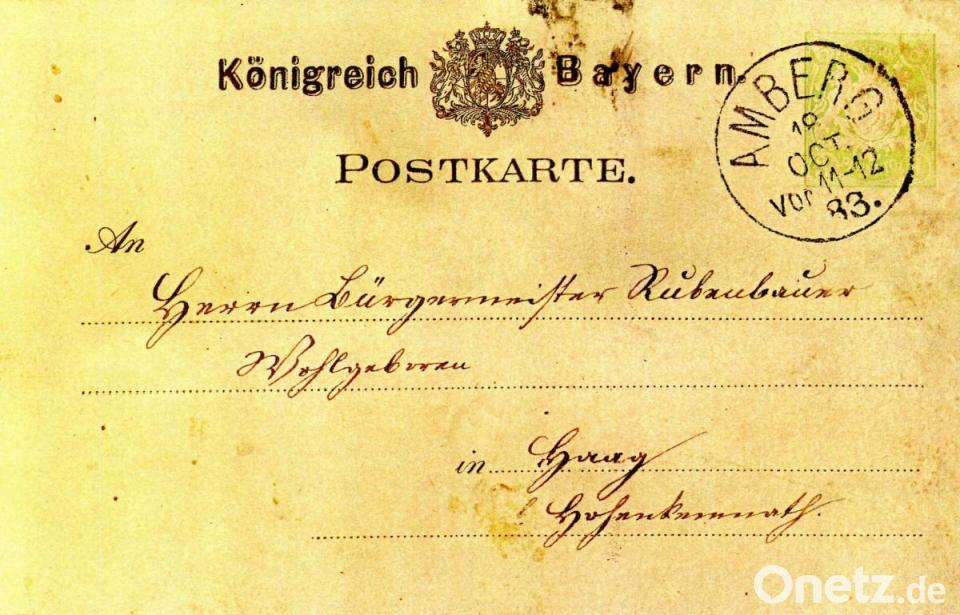 Königreich Bayern.
POSTKARTE.
AMBERG
19
OCT.
Vor 11-12
83.
An
Herrn Bürgermeister Rubenbauer
Wohlgeboren
in Haag
Hohenkemnath.
Onetz.de